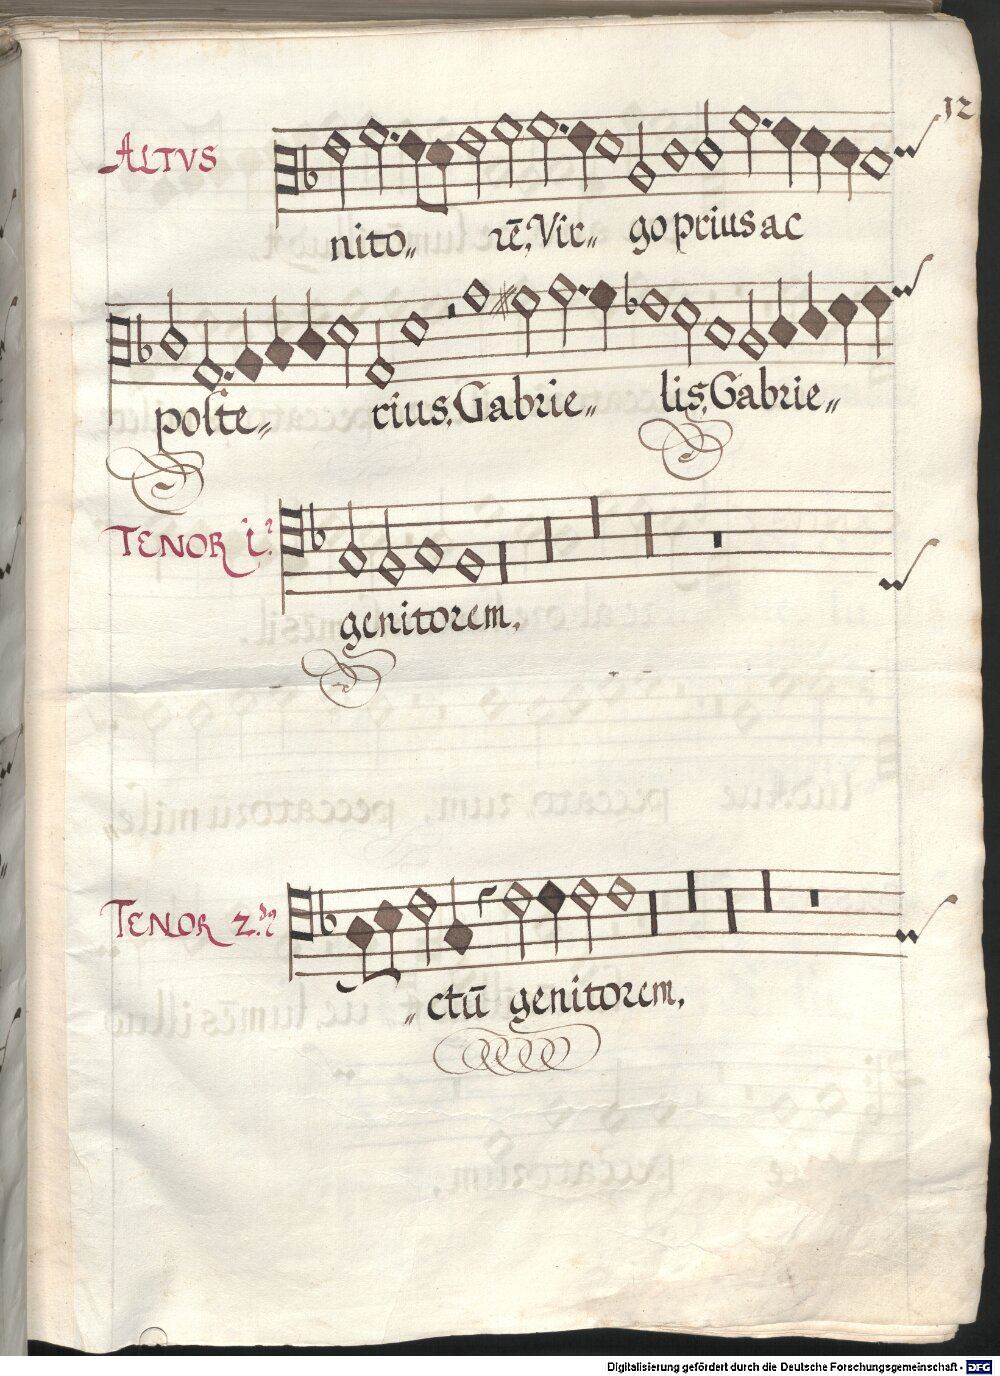 12
ALTVS
nito„ rē, Vir„ go prius ac
poste„ rius, Gabrie„ lis, Gabrie„
TENOR 1.
genitorem,
TENOR 2.
„ ctū genitorem,
Digitalisierung gefördert durch die Deutsche Forschungsgemeinschaft - DFG